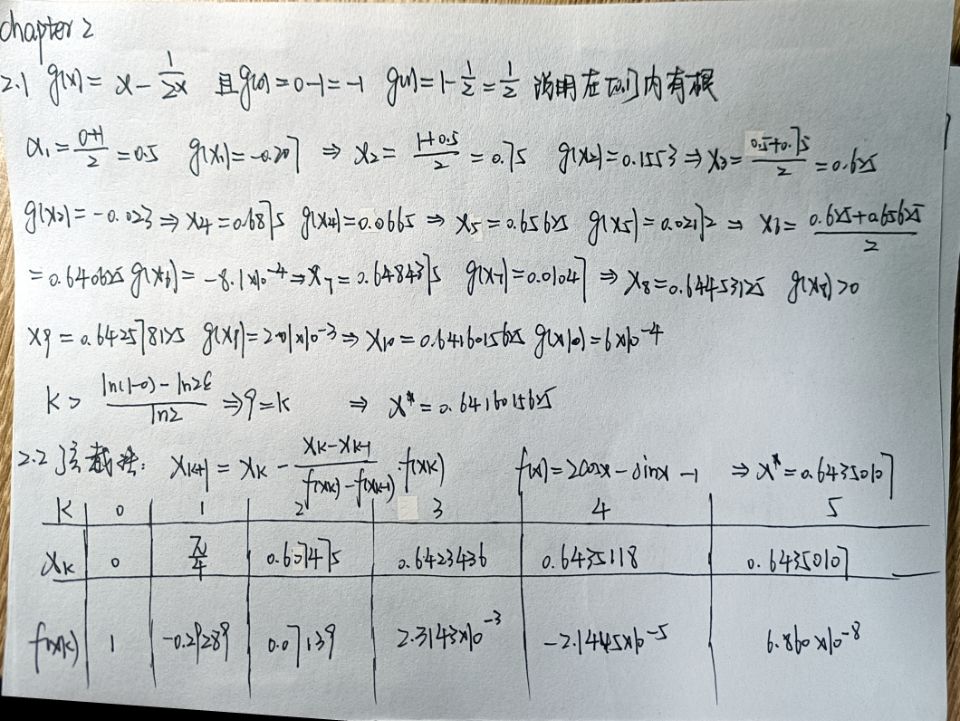 chapter 2
2.1 g(x) = x - 1/2^x 且g(0) = 0-1 = -1 g(1) = 1 - 1/2 = 1/2 说明在[0,1]内有根
x₁ = (0+1)/2 = 0.5 g(x₁) = -0.207 ⇒ x₂ = (1+0.5)/2 = 0.75 g(x₂) = 0.1553 ⇒ x₃ = (0.5+0.75)/2 = 0.625
g(x₃) = -0.023 ⇒ x₄ = 0.6875 g(x₄) = 0.0665 ⇒ x₅ = 0.65625 g(x₅) = 0.0217 ⇒ x₆ = (0.625+0.65625)/2
= 0.640625 g(x₆) = -8.1×10⁻⁴ ⇒ x₇ = 0.6484375 g(x₇) = 0.01047 ⇒ x₈ = 0.64453125 g(x₈) > 0
x₉ = 0.642578125 g(x₉) = 2.01×10⁻³ ⇒ x₁₀ = 0.6416015625 g(x₁₀) = 6×10⁻⁴
k > (ln(1-0) - ln2ε)/ln2 ⇒ 9 = k ⇒ x* = 0.6416015625
2.2 弦截法: x_{k+1} = x_k - (x_k - x_{k-1})/(f(x_k) - f(x_{k-1})) · f(x_k) f(x) = 2cosx - sinx - 1 ⇒ x* = 0.64350107
k 0 1 2 3 4 5
x_k 0 π/4 0.607475 0.6423436 0.6435118 0.64350107
f(x_k) 1 -0.29289 0.07139 2.3143×10⁻³ -2.1445×10⁻⁵ 6.860×10⁻⁸